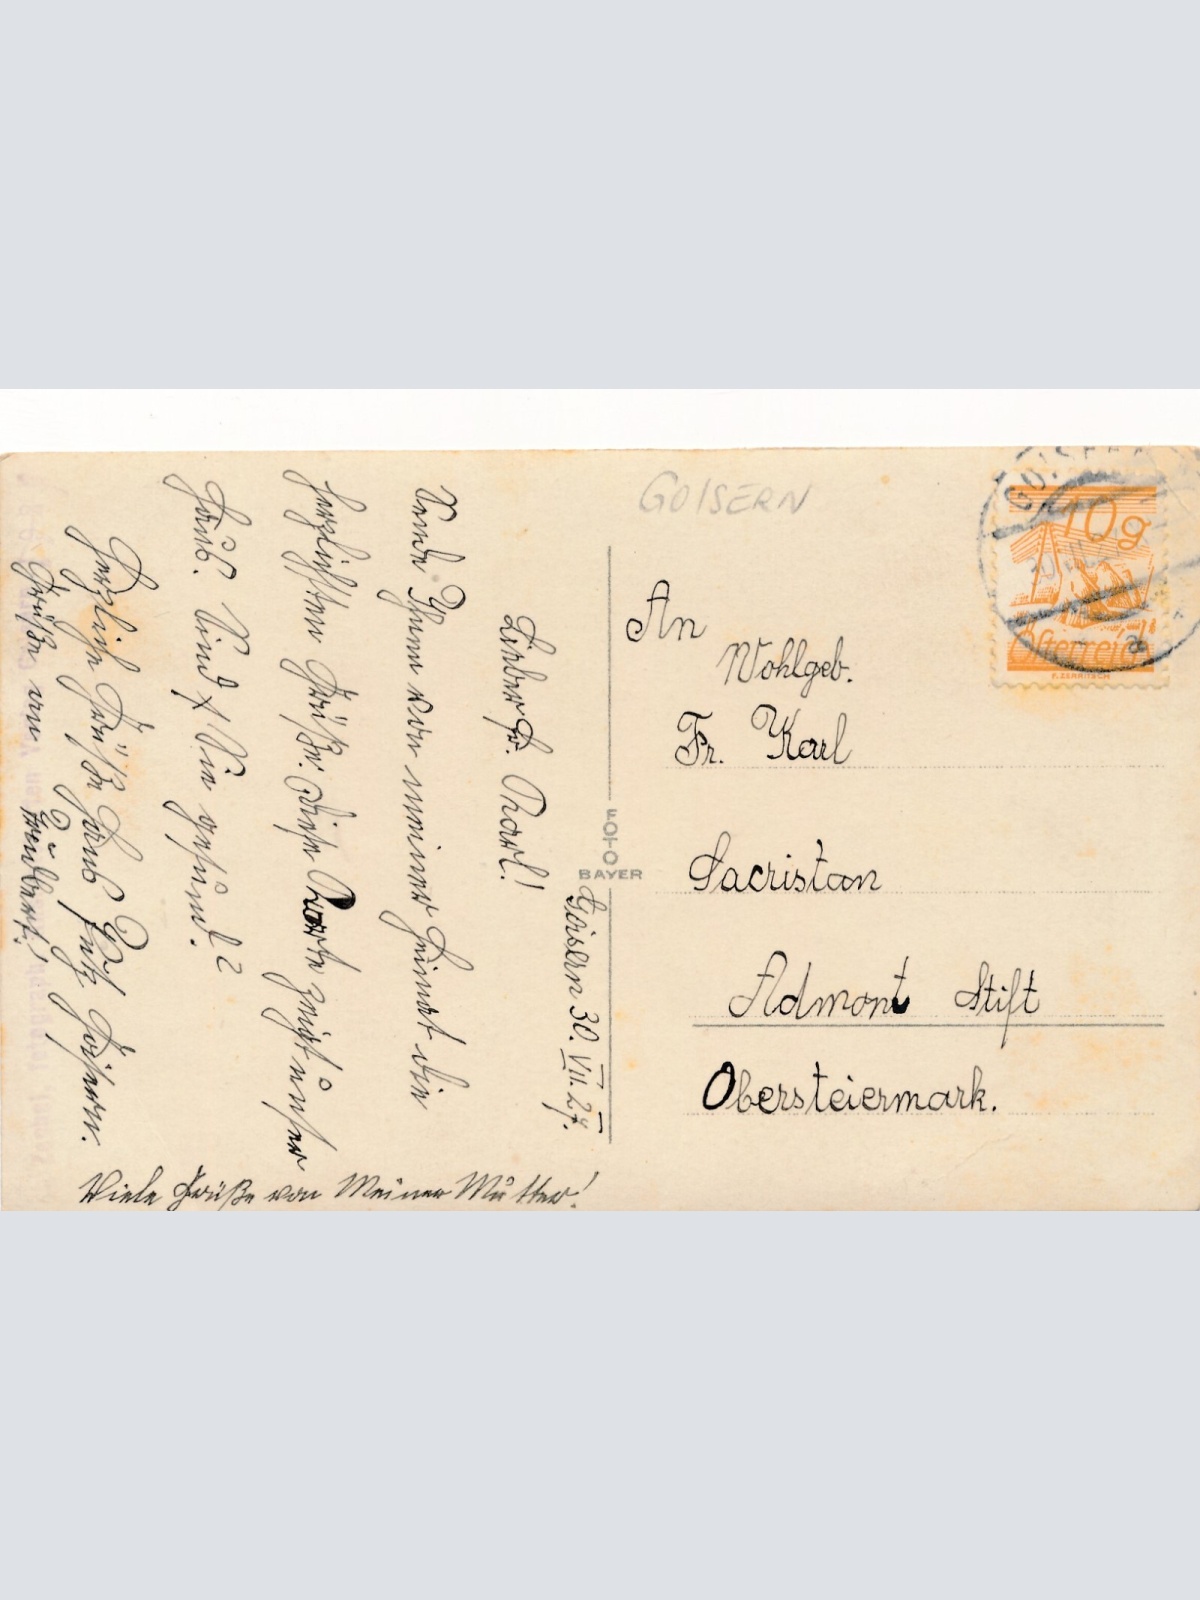 GOISERN
Goisern 30. VII. 27.
Lieber Fr. Karl!
Sende Ihnen von meiner Heimat die
herzlichsten Grüße. Diese Karte zeigt unser
Haus. Sind Sie gesund?
Herzliche Grüße Hans Goisern.
Grüße an
Viele Grüße von Meiner Mutter!
FOTO
BAYER
An
Wohlgeb.
Fr. Karl
Sacristan
Admont Stift
Obersteiermark.
10g
Österreich
F. ZERRITSCH